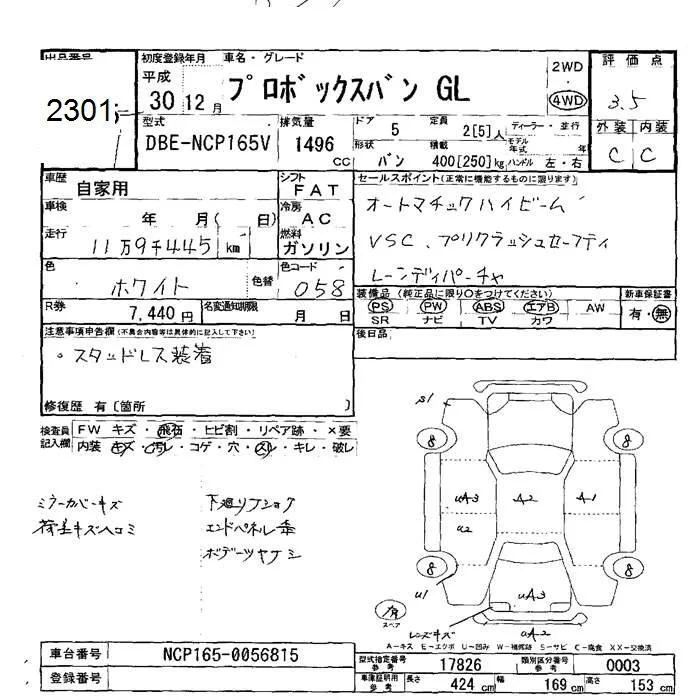 出品番号
2301
初度登録年月 車名・グレード
平成
30 12月
プロボックスバン GL
2WD
・
4WD
評価点
3.5
外装 内装
C C
型式
DBE-NCP165V
排気量
1496
cc
ドア 5 定員 2[5]人 ディーラー・並行
形状 バン 積載 400[250]kg モデル年式 年
ハンドル 左・右
車歴 自家用
シフト FAT
車検 年 月( 日)
冷房 AC
走行 11万9千445 km
燃料 ガソリン
色 ホワイト 色替
色コード 058
R券 7,440円 名変通知期限 月 日
セールスポイント(正常に機能するものに限ります)
オートマチックハイビーム
VSC、プリクラッシュセーフティ
レーンディパーチャ
装備品(純正品に限り○をつけてください) 新車保証書
PS PW ABS エアB AW 有・無
SR ナビ TV カワ
後日品
注意事項申告欄(不具合内容等は具体的に記入して下さい)
。スタッドレス装着
修復歴 有〔箇所 〕
検査員記入欄
FW キズ・飛石・ヒビ割・リペア跡・×要
内装 キズ・汚レ・コゲ・穴・スレ・キレ・破レ
ミラーカバーキズ 下廻リ
荷室キズヘコミ エンドパネル
S1
8 8
uA3 A2 A1
u2
8 8
u1 uA3
スペア
レンズキズ uA2
A-キズ E-エクボ U-凹み W-補修跡 S-サビ C-腐食 XX-交換済
車台番号 NCP165-0056815
登録番号
型式指定番号 参考 17826 類別区分番号 参考 0003
車庫証明用 参考 長さ 424 cm 幅 169 cm 高さ 153 cm